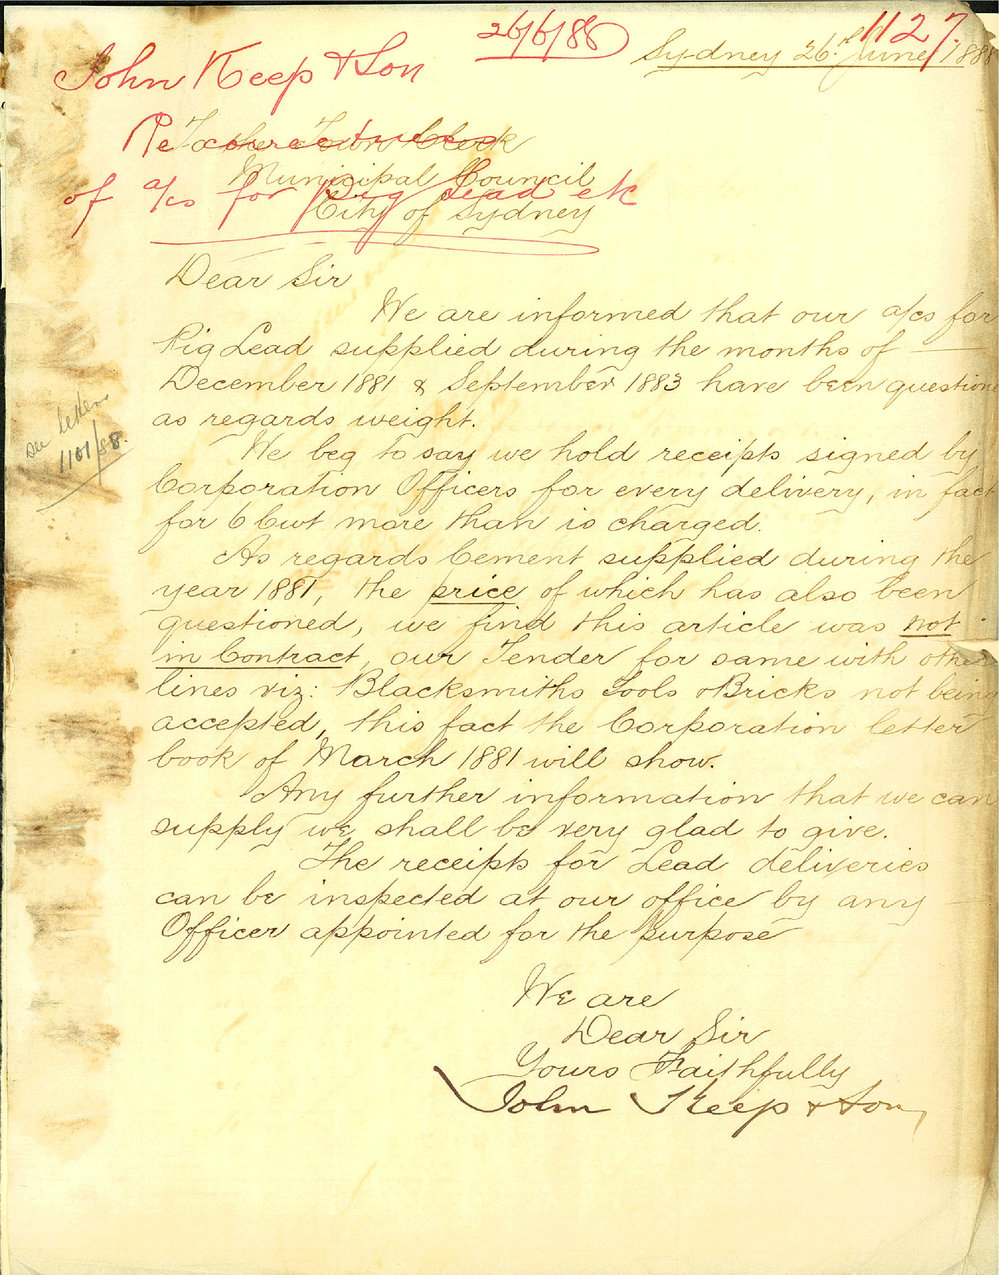 26/6/88
1127.
Sydney 26th June 188
John Keep & Son
Re correctness
To the Town Clerk
Municipal Council
of a/cs for Pig Lead etc
City of Sydney
Dear Sir
We are informed that our a/cs for
Pig Lead supplied during the months of
December 1881 & September 1883 have been question
as regards weight.
see letter
1101/88.
We beg to say we hold receipts signed by
Corporation Officers for every delivery, in fact
for 6 Cwt more than is charged.
As regards Cement supplied during the
year 1881, the price of which has also been
questioned, we find this article was not
in Contract, our Tender for same with other
lines viz: Blacksmiths Tools & Bricks not being
accepted, this fact the Corporation letter
book of March 1881 will show.
Any further information that we can
supply we shall be very glad to give.
The receipts for Lead deliveries
can be inspected at our office by any
Officer appointed for the purpose
We are
Dear Sir
Yours Faithfully
John Keep & Son